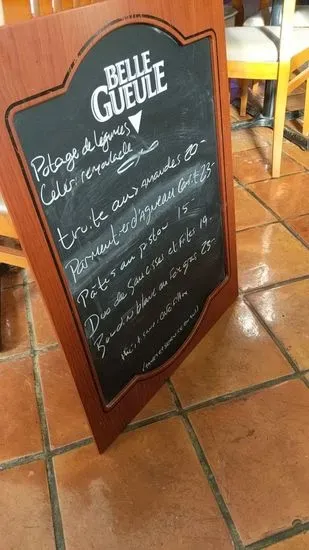 BELLE
GUEULE
Potage de légumes
Céleri remoulade
truite aux amandes 20-
Parmentier d'agneau Confit 23-
Pâtes au pistou 15-
Duo de saucisses et frites 19-
Boudin blanc aux 25-